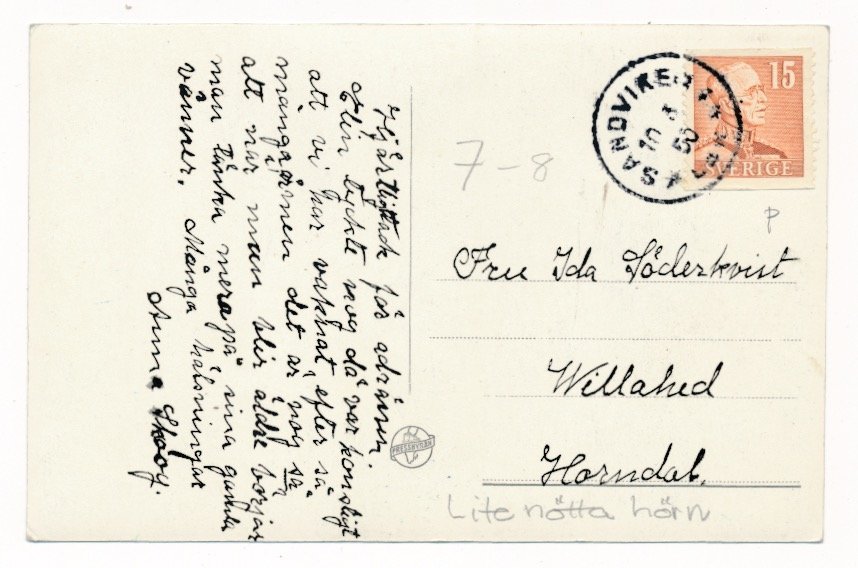 Hjärtligt tack för adressen.
Elin tyckte nog då var konstigt
att vi har vaknat, efter så
många åren det är nog så
att när man blir äldre börjar
man tänka mera på sina gamla
vänner. Många hälsningar
Anna Skoog.
SANDVIKEN
15
SVERIGE
7-8
P
Fru Ida Söderkvist
Willahed
Horndal.
PRESSBYRÅN
Lite nötta hörn